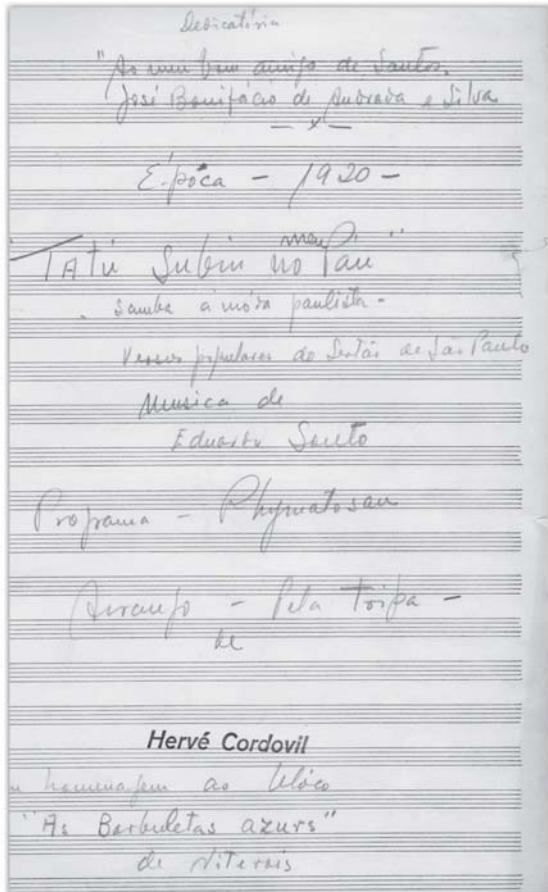 Dedicatória
"Ao meu bom amigo de Santos.
José Bonifácio de Andrada e Silva
— x —
Época - 1920 -
"Tatú subiu no Pau"
. Samba á móda paulista -
Versos populares do Sertão de São Paulo
Musica de
Eduardo Souto
Programa - Phymatosan
Arranjo - Pela Tripa -
de
Hervé Cordovil
homenagem ao blóco
"As Barbuletas azurs"
de Niterois